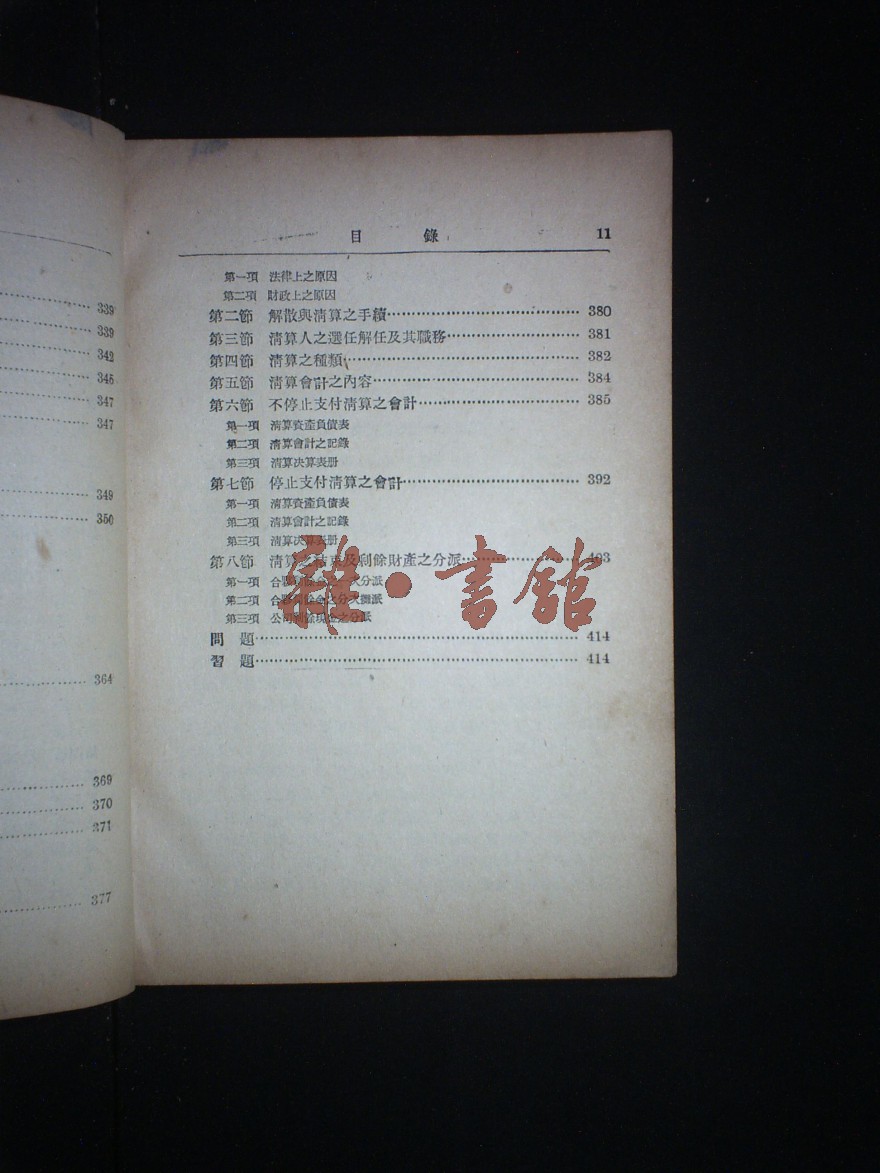 339
339
342
345
347
347
349
350
364
369
370
371
377
目 錄 11
第一項 法律上之原因
第二項 財政上之原因
第二節 解散與淸算之手續 380
第三節 淸算人之選任解任及其職務 381
第四節 淸算之種類 382
第五節 淸算會計之內容 384
第六節 不停止支付淸算之會計 385
第一項 淸算資產負債表
第二項 淸算會計之記錄
第三項 淸算決算表册
第七節 停止支付淸算之會計 392
第一項 淸算資產負債表
第二項 淸算會計之記錄
第三項 淸算決算表册
第八節 淸算之結束及剩餘財產之分派 403
第一項 合夥剩餘金之一次分派
第二項 合夥剩餘金之分次攤派
第三項 公司剩餘現金之分派
問 題 414
習 題 414
雜·書館